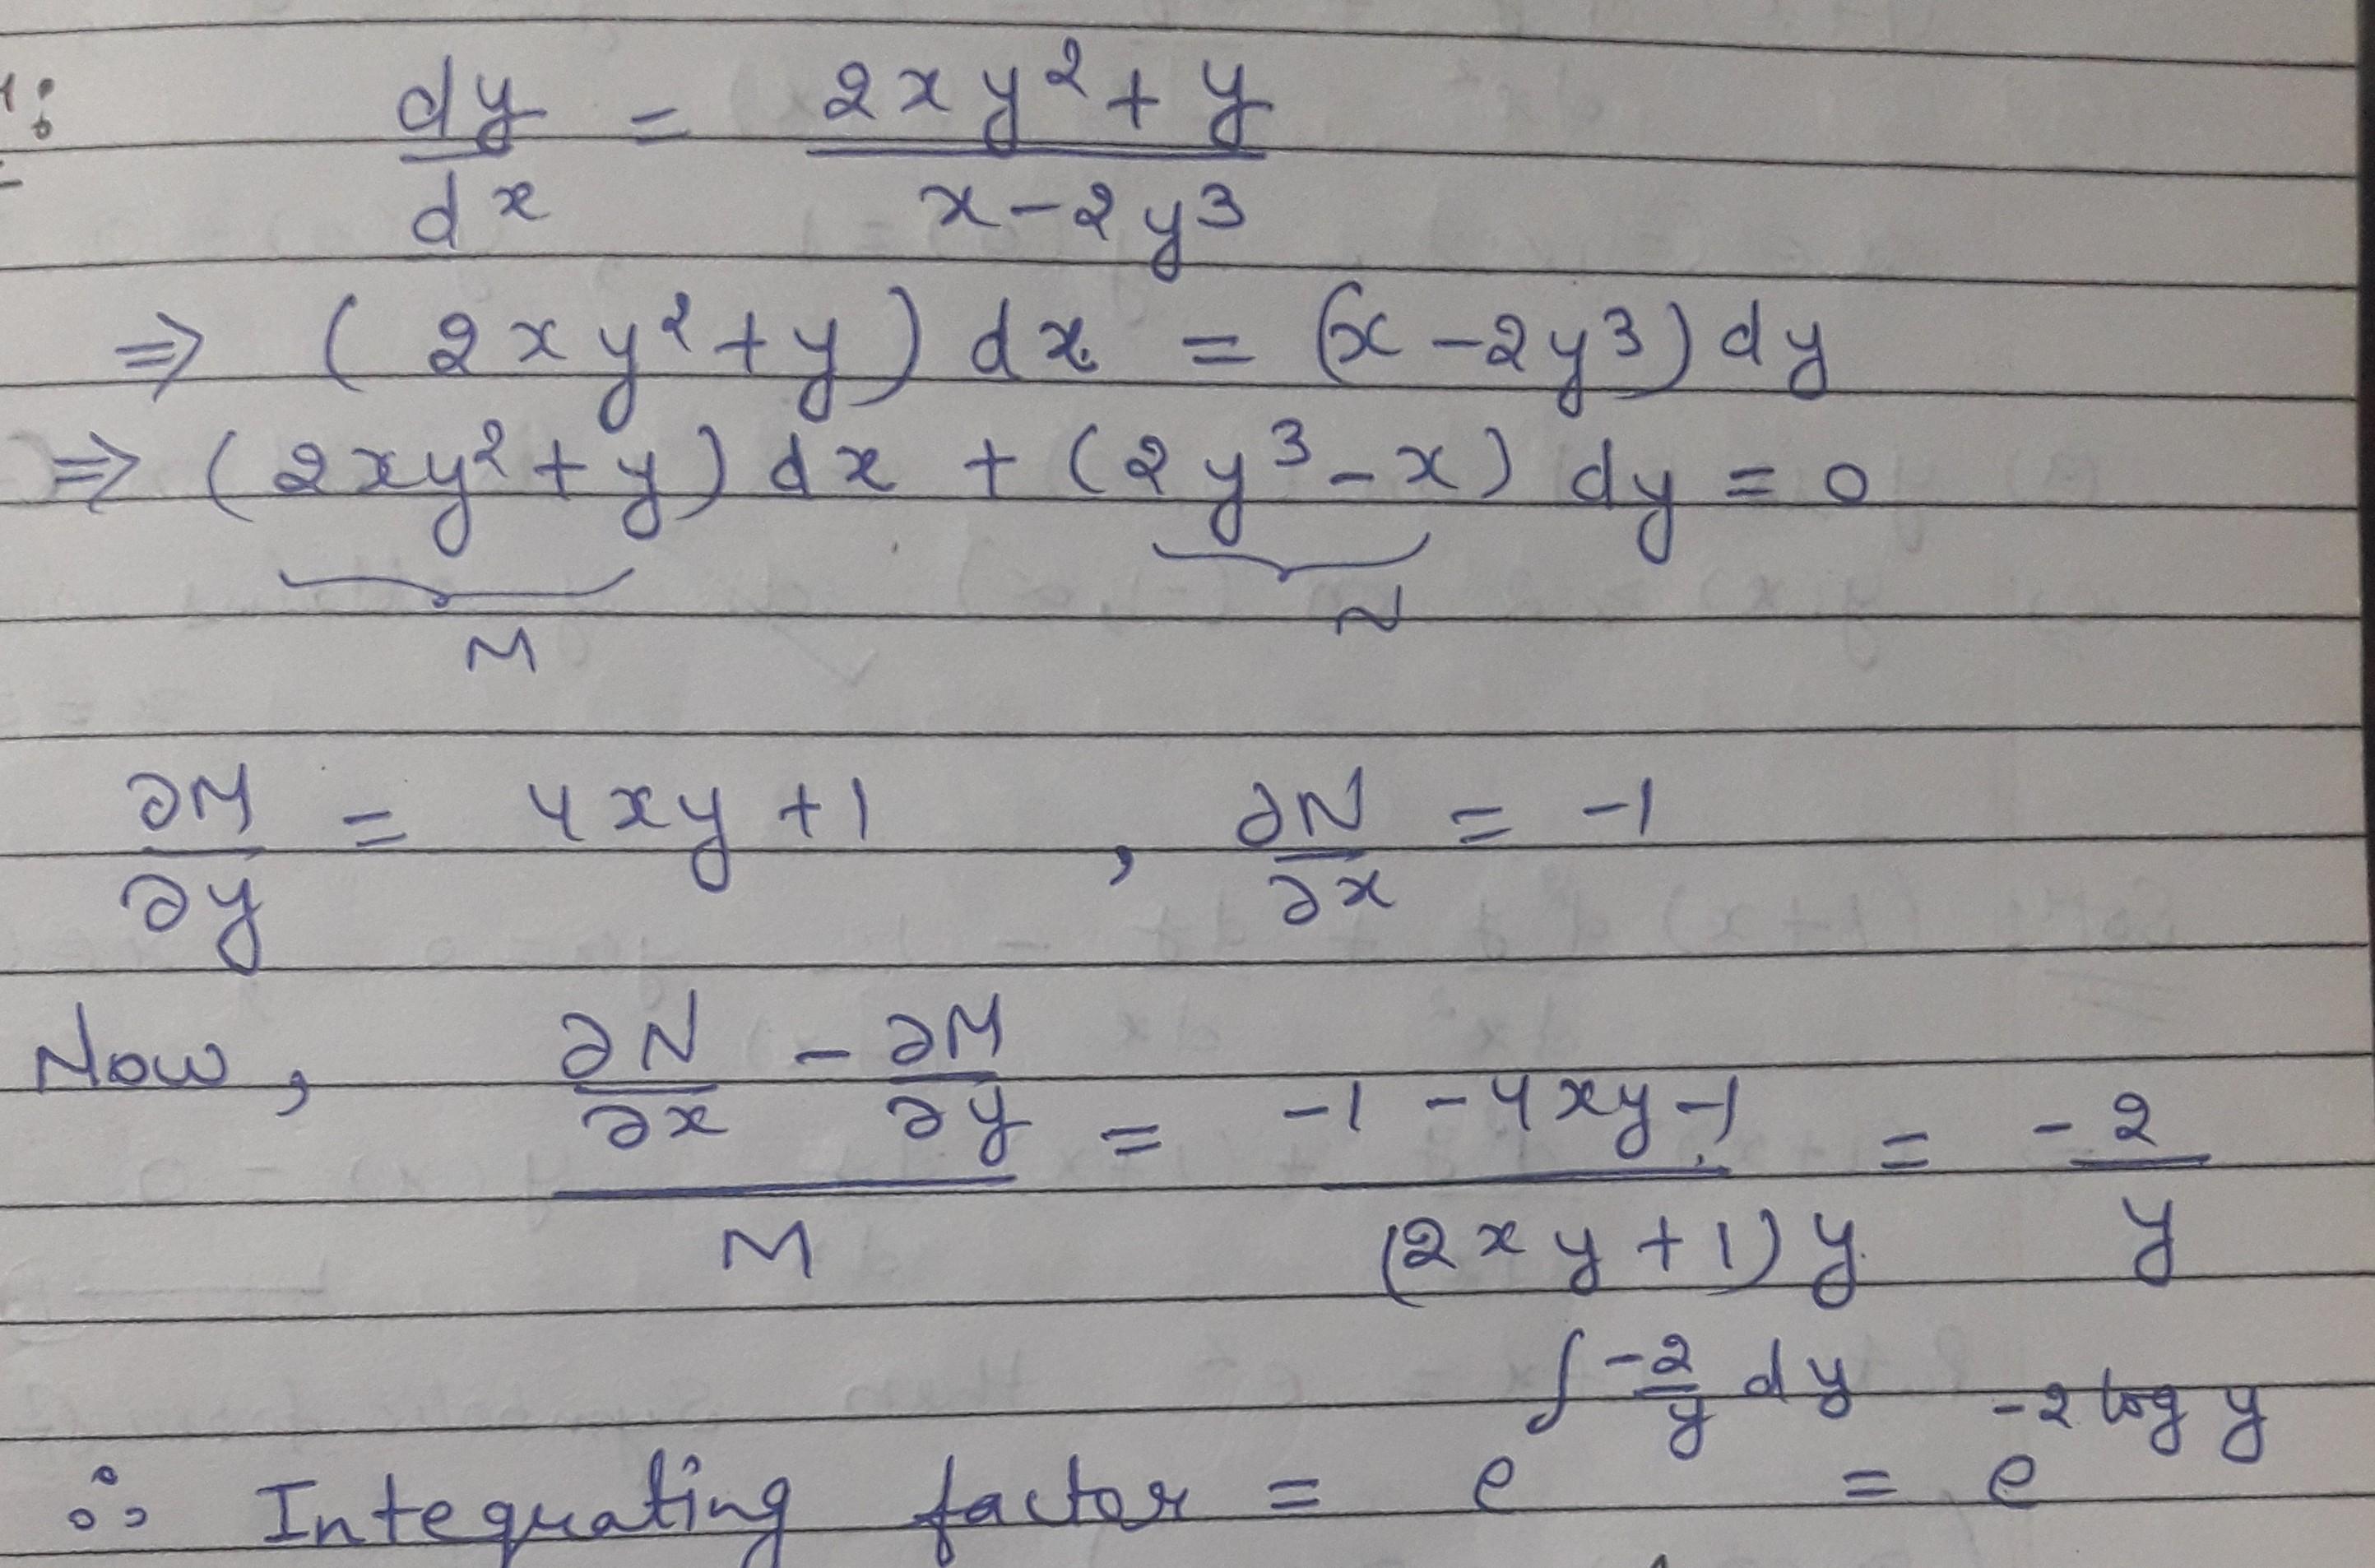 dy/dx = (2xy² + y)/(x - 2y³)
⇒ (2xy² + y) dx = (x - 2y³) dy
⇒ (2xy² + y) dx + (2y³ - x) dy = 0
M N
∂M/∂y = 4xy + 1 , ∂N/∂x = -1
Now, (∂N/∂x - ∂M/∂y)/M = (-1 - 4xy - 1)/((2xy + 1) y) = -2/y
∴ Integrating factor = e^(∫ -2/y dy) = e^(-2 log y)